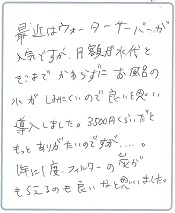 最近はウォーターサーバーが
人気ですが、月額が水代と
そこまでかわらずに お風呂の
水がしみにくいので良いと思い
導入しました。3500円くらいだと
もっとありがたいのですが……。
1年に1度、フィルターの炭が
もらえるのも良いなと思いました。